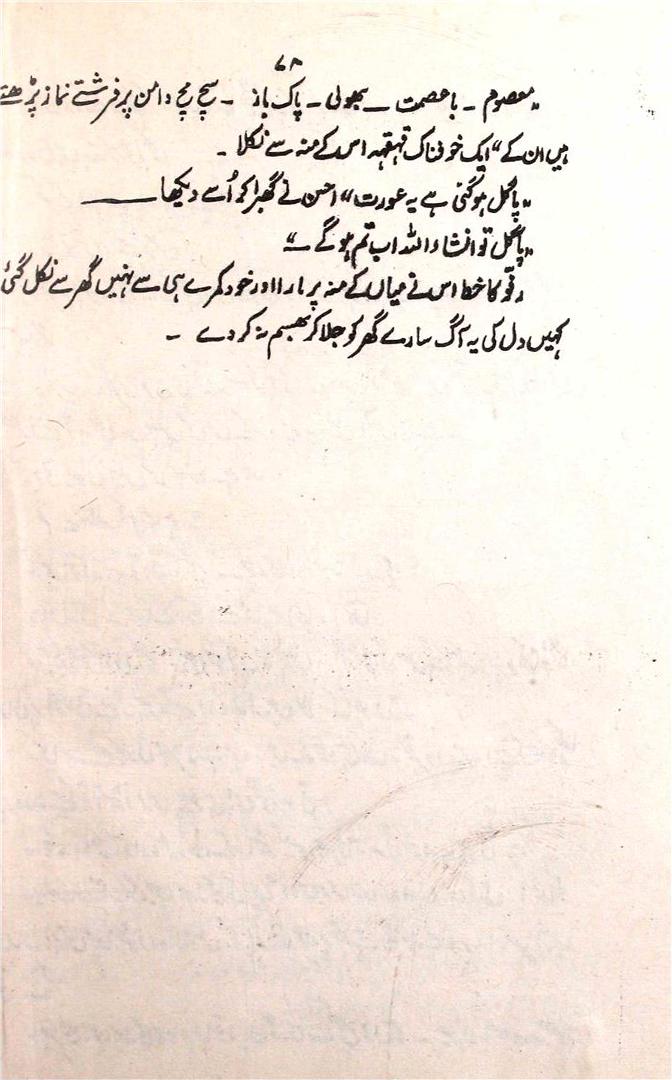 ۷۸
"معصوم ۔ باعصمت ۔ بھولی ۔ پاک باز ۔ سچ مچ دامن پر فرشتے نماز پڑھتے
ہیں ان کے" ایک خوفناک قہقہہ اس کے منہ سے نکلا ۔
"پاگل ہوگئی ہے یہ عورت" احسن نے گھبرا کر اُسے دیکھا ــــــ
"پاگل تو انشاءاللہ اب تم ہو گے ۔"
رفو کا خط اس نے میاں کے منہ پر مارا اور خود کمرے ہی سے نہیں گھر سے نکل گئی
کہیں دل کی یہ آگ سارے گھر کو جلا کر بھسم نہ کر دے ۔